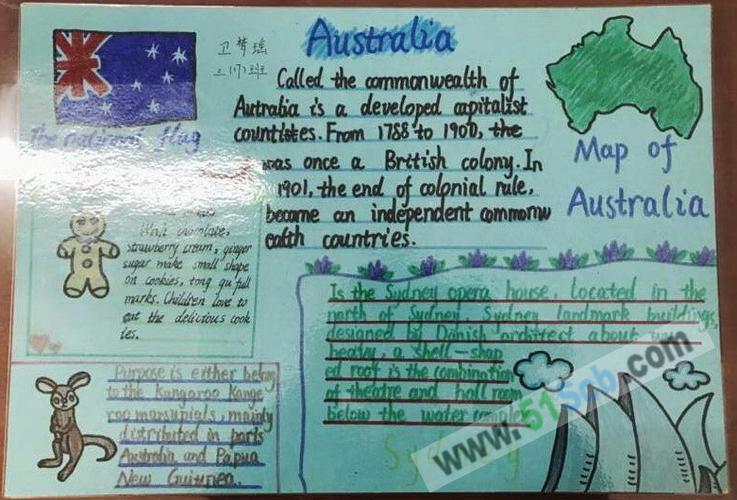 卫梦瑶
三(17)班
Australia
The national flag
Called the commonwealth of
Autralia is a developed capitalist
countistes. From 1788 to 1900, the
was once a British colony. In
1901, the end of colonial rule,
became an independent commonw
ealth countries.
Map of
Australia
chocolate,
strawberry cream, ginger
sugar make small shape
on cookies, tong qu full
marks. Children love to
eat the delicious cook
ies.
Purpose is either belong
to the Kangaroo Kange
roo marsupials, mainly
distributed in parts
Australia and Papua
New Guitunea.
Is the Sydney opera house, located in the
north of Sydney, Sydney landmark buildings,
designed by Danish architect about
a shell-shap
ed roof is the combination
of theatre and hall room
below the water complex
Sydney
www.515cb.com